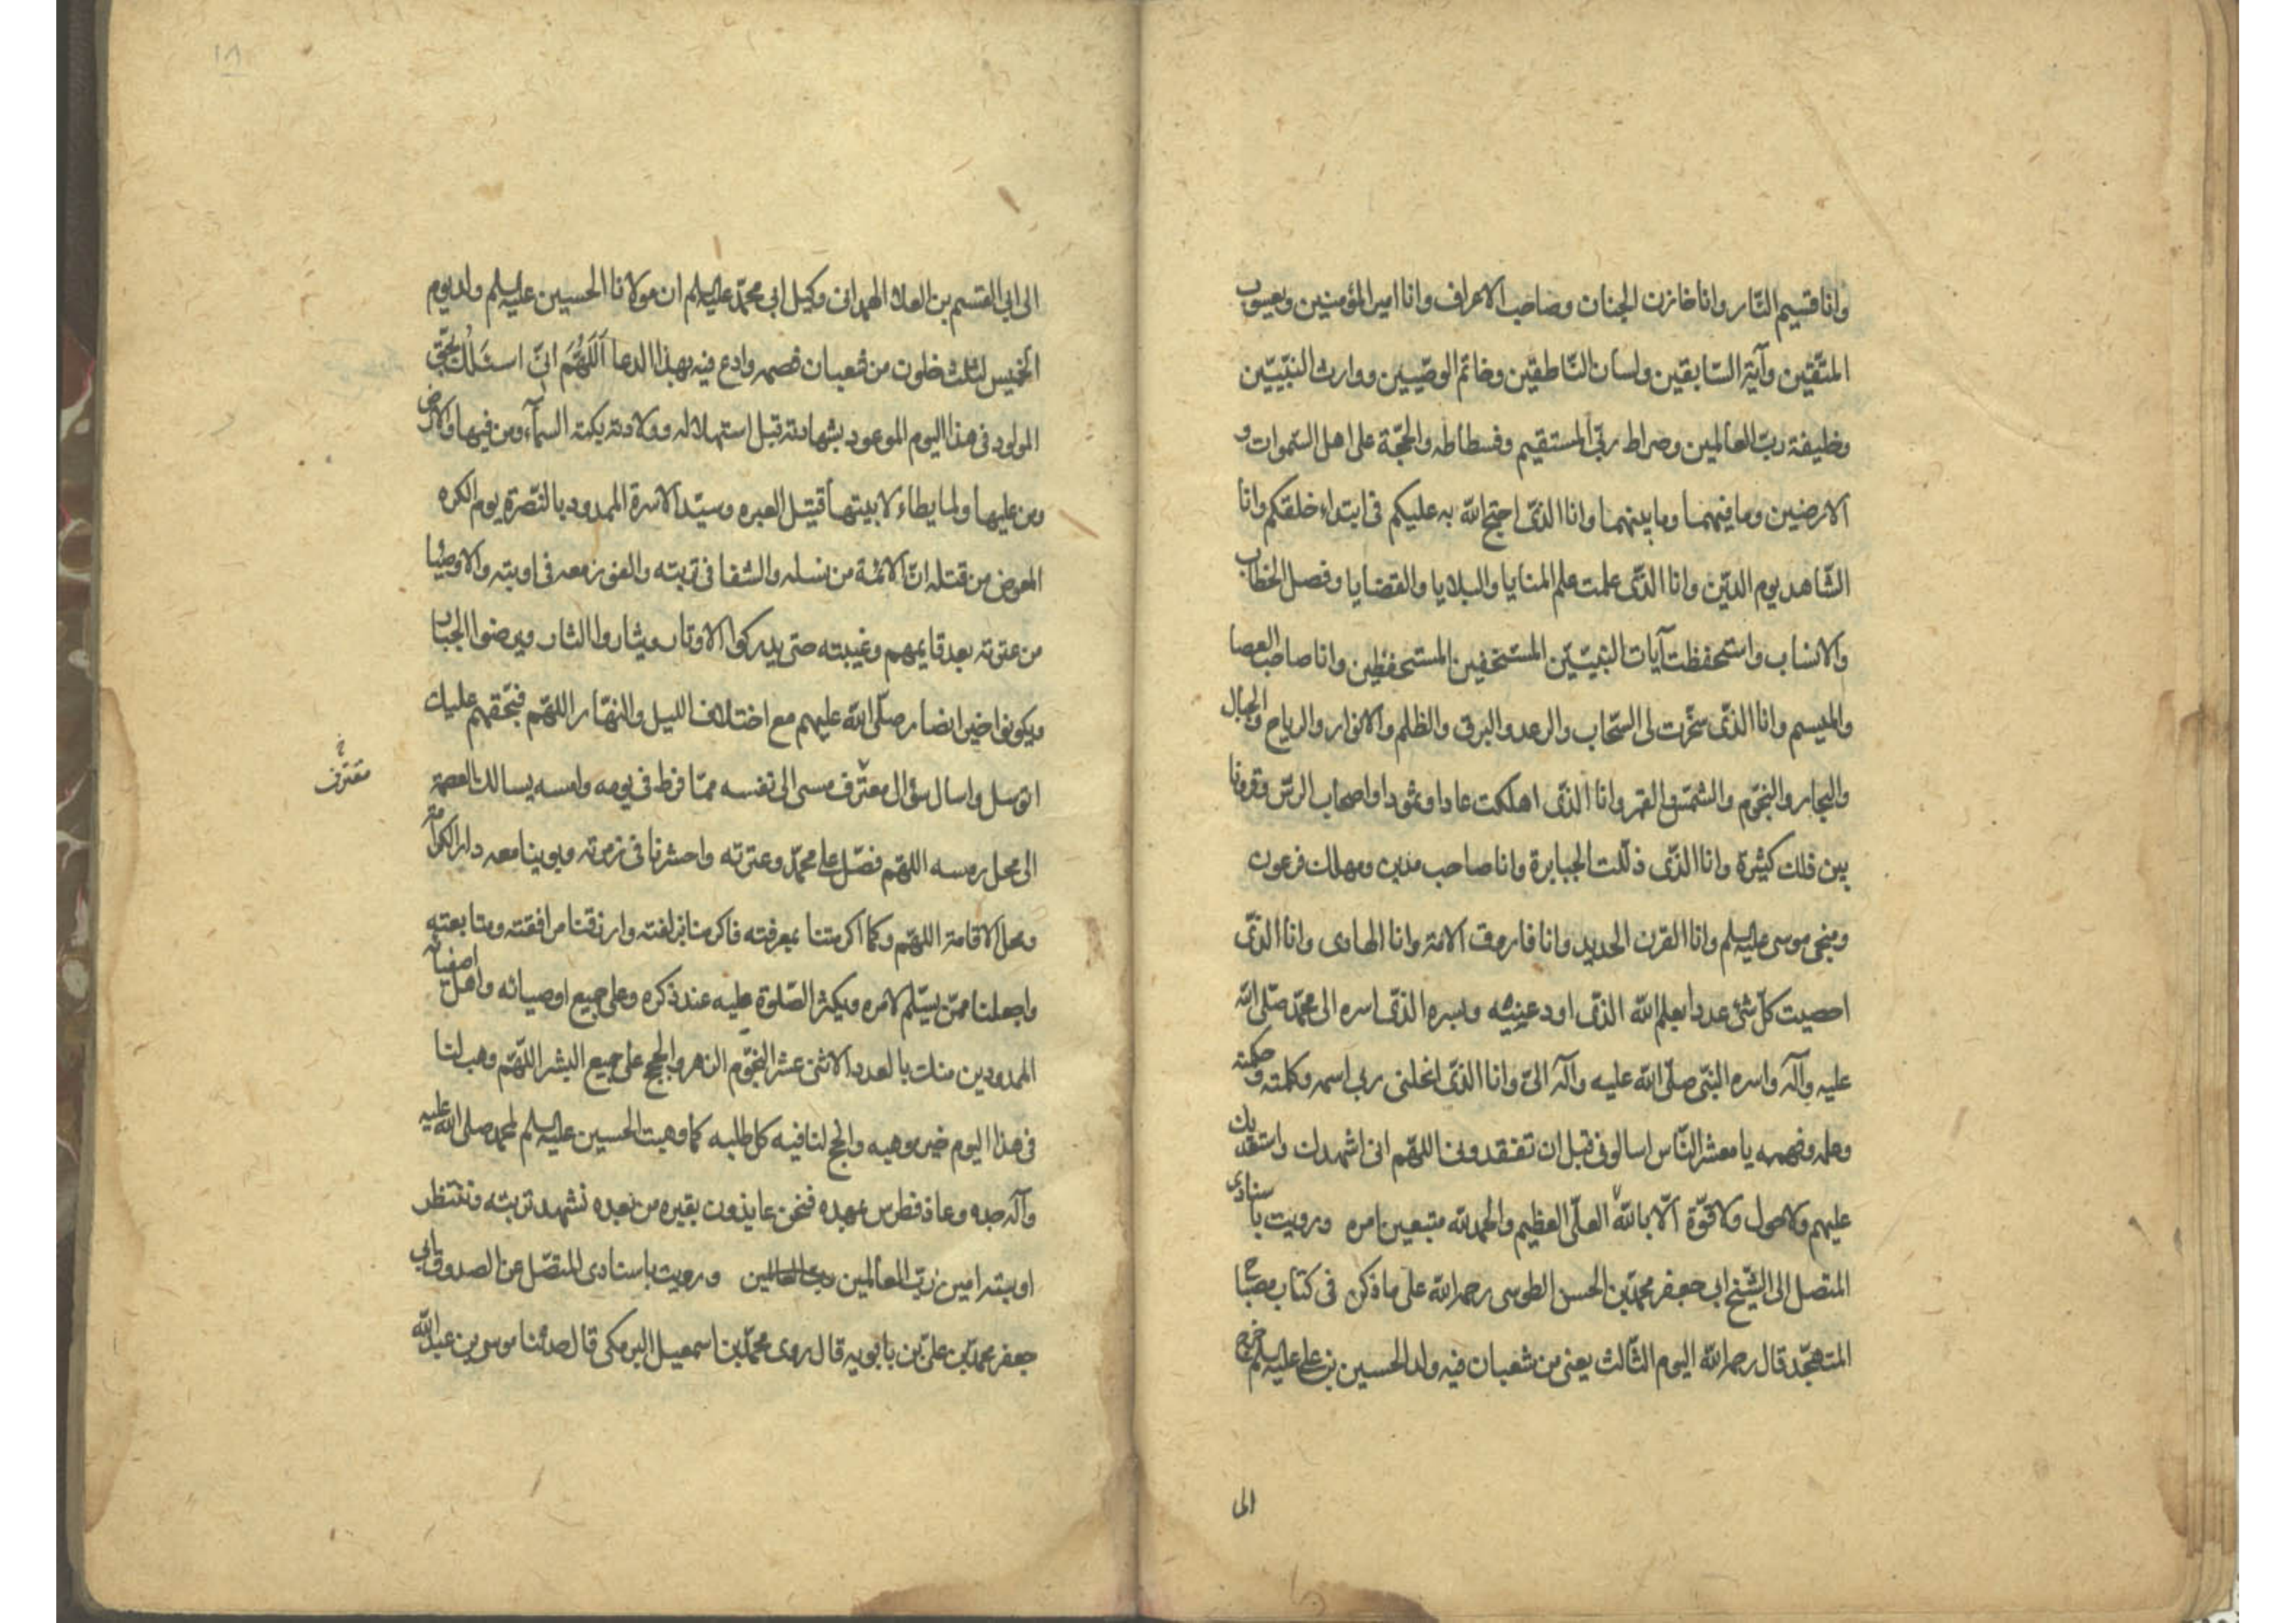 وانا قسيم النّار وانا خازن الجنان وصاحب الاعراف وانا امير المؤمنين ويعسوب
المتّقين وآية السّابقين ولسان النّاطقين وخاتم الوصّيين ووارث النبّيين
وخليفة ربّ العالمين وصراط ربّي المستقيم وفسطاطه والحجّة على اهل السّموات و
الارضين وما فيهما وما بينهما وانا الذّى احتج الله به عليكم فى ابتداء خلقكم وانا
الشّاهد يوم الدّين وانا الذّى علمت علم المنايا والبلايا والقضايا وفصل الخطاب
والانساب واستحفظت آيات النبيّين المستخفين المستحفظين وانا صاحب العصا
والميسم وانا الذّى سخّرت لى السّحاب والرعد والبرق والظلم والانوار والرياح والجبال
والبحار والنجوم والشمس والقمر وانا الذّى اهلكت عادا وثمودا واصحاب الرسّ وقرونا
بين ذلك كثيرة وانا الذّى ذلّلت الجبابرة وانا صاحب مدين ومهلك فرعون
ومنجى موسى عليه السلم وانا القرن الحديد وانا فاروق الامة وانا الهادى وانا الذّى
احصيت كلّ شئ عددا بعلم الله الذّى اودعنيه وبسره الذّى اسره الى محمّد صلّى الله
عليه وآله واسره النبّى صلّى الله عليه وآله الىّ وانا الذّى انحلنى ربى اسمه وكلمته وحكمته
وعلمه وفهمه يا معشر النّاس اسالونى قبل ان تفقدونى اللهّم انى اشهدك واستعديك
عليهم ولا حول ولا قوّة الّا بالله العلّى العظيم والحمد لله متبعين امره ورويت باسنادى
المتصل الى الشّيخ ابى جعفر محمّد بن الحسن الطوسى رحمه الله على ما ذكره فى كتاب مصباح
المتهجّد قال رحمه الله اليوم الثّالث يعنى من شعبان فيه ولد الحسين بن على عليه السلم خرج
الى
١٨
الى ابى القسيم بن العلا الهمدانى وكيل ابى محمّد عليه السلم ان مولانا الحسين عليه السلم ولد يوم
الخميس لثلث خلون من شعبان فصمه وادع فيه بهذا الدعا اَللّهُمَّ انّى اسئلك بحقّ
المولود فى هذا اليوم الموعود بشهادته قبل استهلاله وولادته بكته السمآء ومن فيها والارض
ومن عليها ولما يطاء لابيتها قتيل العبره وسيّد الاسرة الممدود بالنّصرة يوم الكره
المعوض من قتله انّ الائمة من نسله والشفا فى تربته والفوز معه فى اوبته والاوصيا
من عترته بعد قايمهم وغيبته حتى يدركوا الاوتار ويثاروا الثار ويرضوا الجبار
ويكونوا خير انصار صلّى الله عليهم مع اختلاف الليل والنهّار اللهّم فبحقهم عليك
اتوسل واسال سؤال معترف مسى الى نفسه ممّا فرط فى يومه وامسه يسالك العصمة
مقترف خ
الى محل رمسه اللهّم فصّل على محمّد وعترته واحشرنا فى زمرته وبوينا معه دار الكرامة
ومحل الاقامة اللهّم وكما اكرمتنا بمعرفته فاكرمنا بزلفته وارزقنا مرافقته ومتابعته
واجعلنا ممّن يسّلم لامره ويكثر الصّلوة عليه عند ذكره وعلى جميع اوصيائه واهل اصفيائه
الممدودين منك بالعدد الاثنى عشر النجوّم الزهر والحجج على جميع البشر اللّهّم وهب لنا
فى هذا اليوم خير موهبه وانجح لنا فيه كل طلبه كما وهبت الحسين عليه السلم لمحمد صلى الله عليه
وآله جده وعاذ فطرس بمهده فنحن عايذون بقبره من بعده نشهد تربته وننتظر
اوبته امين ربّ العالمين رب العالمين ورويت باسنادى المتصّل عن الصدوق ابى
جعفر محمّد بن علىّ بن بابويه قال روى محمّد بن اسمعيل البرمكى قال حدثنا موسى بن عبد الله